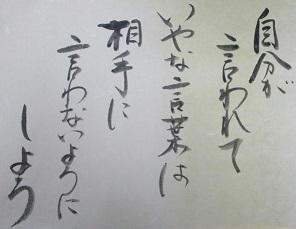 自分が
言われて
いやな言葉は
相手に
言わないように
しよう